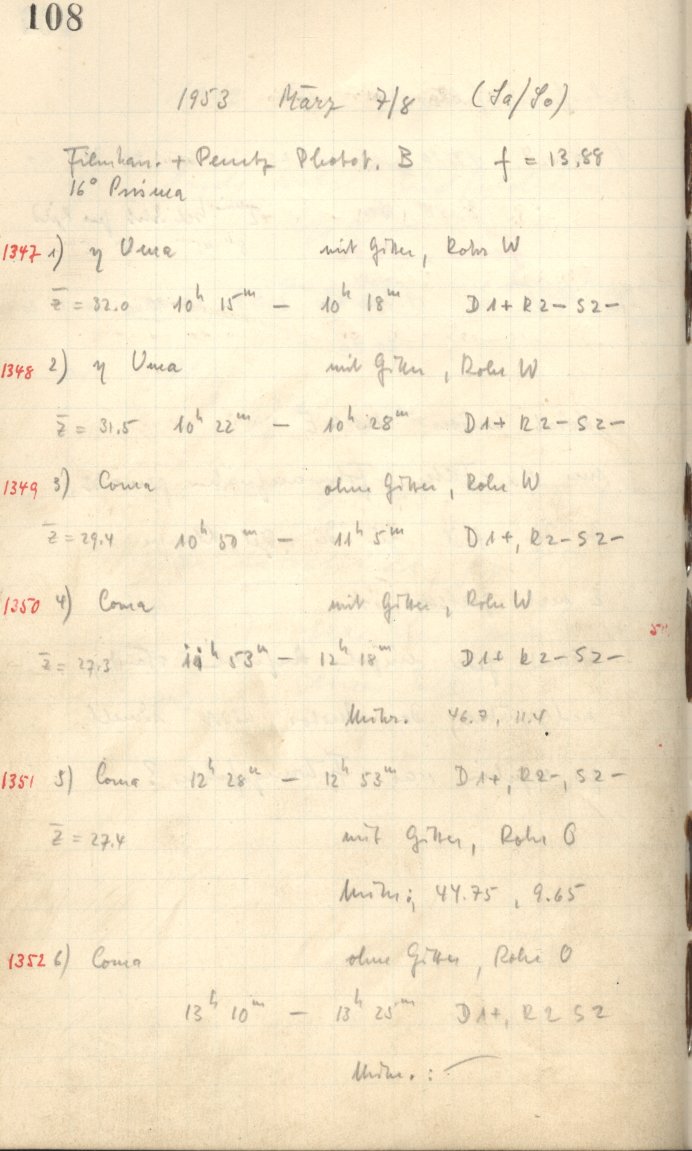 108
1953 März 7/8 (Sa/So)
Filmkas. + Perutz Photot. B f = 13.88
16° Prisma
1347 1) η Uma mit Gitter, Rohr W
z̅ = 32.0 10ʰ 15ᵐ – 10ʰ 18ᵐ D1+ R2– S2–
1348 2) η Uma mit Gitter, Rohr W
z̅ = 31.5 10ʰ 22ᵐ – 10ʰ 28ᵐ D1+ R2– S2–
1349 3) Coma ohne Gitter, Rohr W
z̅ = 29.4 10ʰ 50ᵐ – 11ʰ 5ᵐ D1+, R2– S2–
1350 4) Coma mit Gitter, Rohr W
z̅ = 27.3 11ʰ 53ᵐ – 12ʰ 18ᵐ D1+ R2– S2–
Mikr. 46.7, 11.4
1351 5) Coma 12ʰ 28ᵐ – 12ʰ 53ᵐ D1+, R2–, S2–
z̅ = 27.4 mit Gitter, Rohr O
Mikr.: 44.75, 9.65
1352 6) Coma ohne Gitter, Rohr O
13ʰ 10ᵐ – 13ʰ 25ᵐ D1+, R2 S2
Mikr. : —